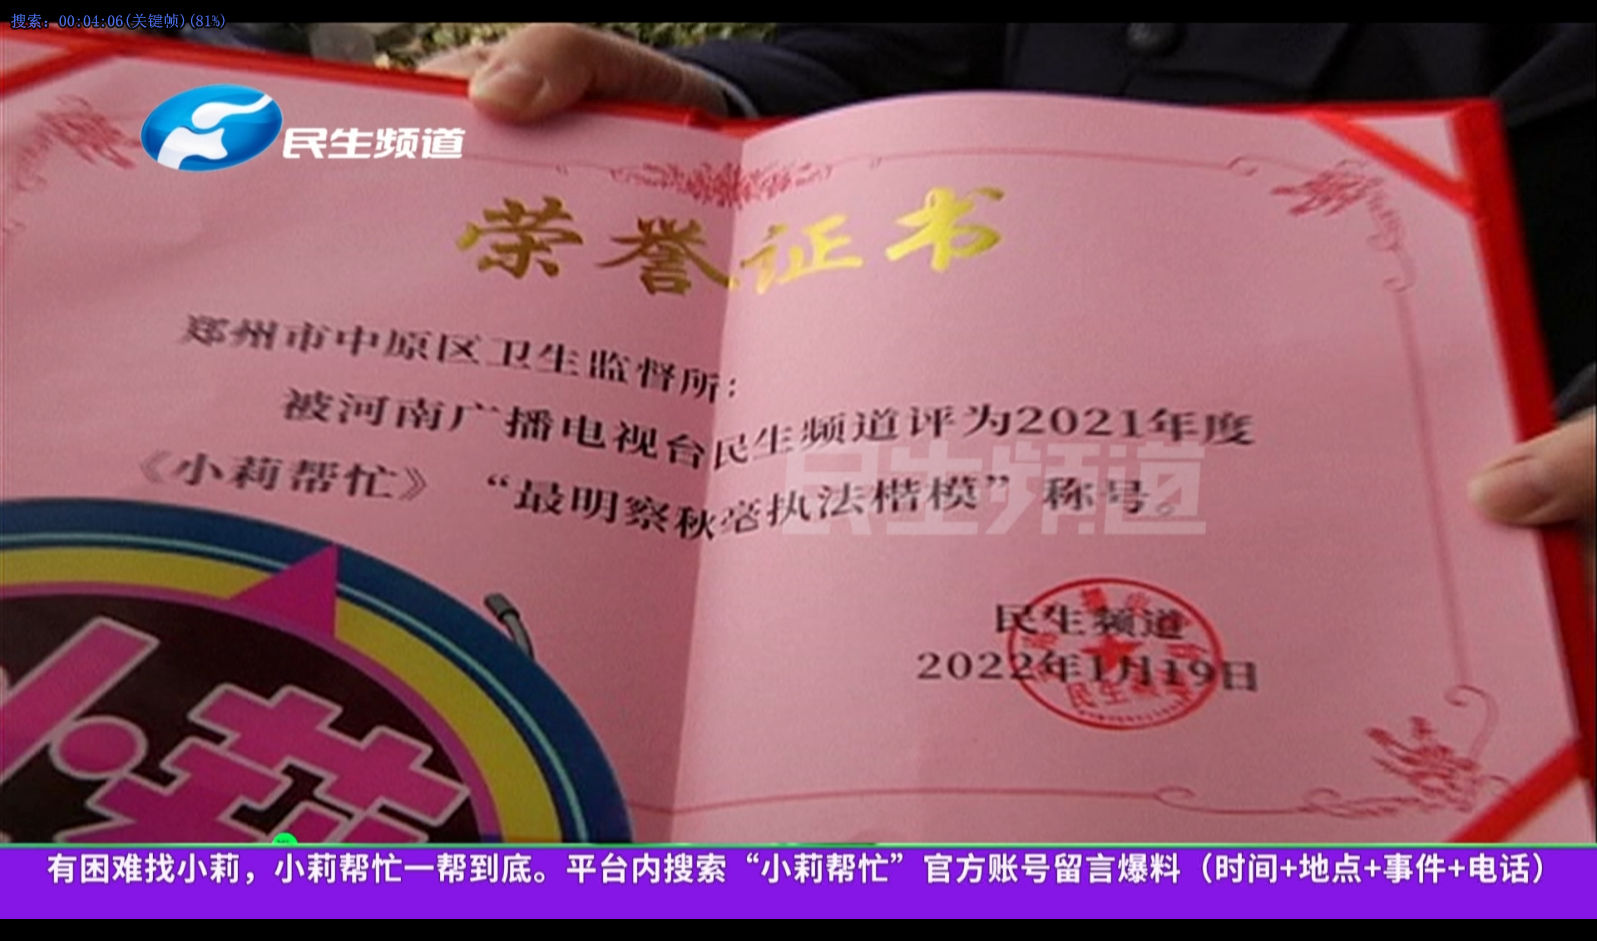 搜索：00:04:06(关键帧)(81%)
民生频道
荣誉证书
郑州市中原区卫生监督所：
被河南广播电视台民生频道评为2021年度
《小莉帮忙》“最明察秋毫执法楷模”称号。
民生频道
民生频道
2022年1月19日
小莉
有困难找小莉，小莉帮忙一帮到底。平台内搜索“小莉帮忙”官方账号留言爆料（时间+地点+事件+电话）